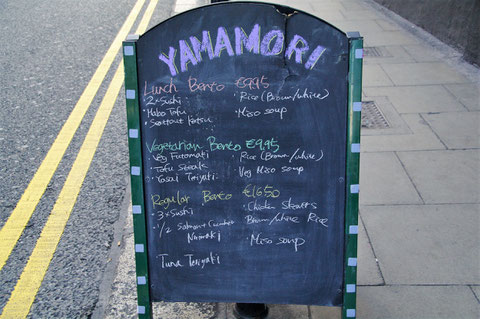 YAMAMORI
Lunch Bento €9.95
• 2x Sushi
• Mabo Tofu
• Katsu
• Rice (Brown/white)
• Miso soup
Vegetarian Bento €9.95
• Veg Futomaki
• Tofu Steak
• Yasai Teriyaki
• Rice (Brown/white)
Veg Miso soup
Regular Bento €16.50
• 3x Sushi
• 1/2 Salmon + Cucumber
Norimaki
Tuna Teriyaki
• Chicken Skewers
Brown/white Rice
• Miso soup